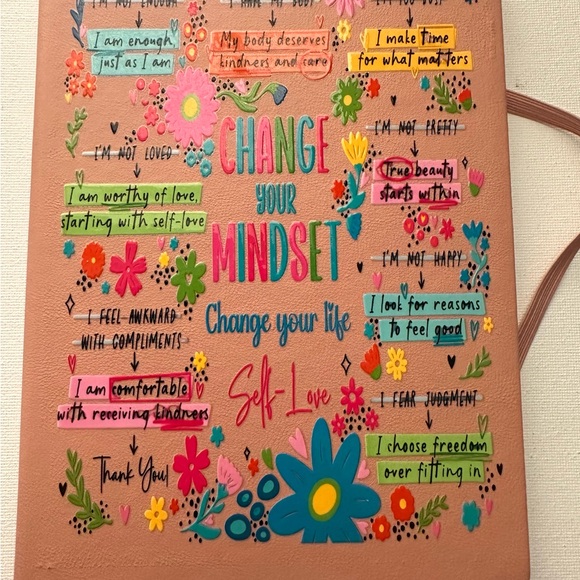 I'M NOT ENOUGH
I HATE MY BODY
I am enough
just as I am
My body deserves
kindness and care
I make time
for what matters
I'M NOT LOVED
I am worthy of love,
starting with self-love
CHANGE
YOUR
MINDSET
Change your life
Self-Love
I'M NOT PRETTY
True beauty
starts within
I'M NOT HAPPY
I look for reasons
to feel good
I FEEL AWKWARD
WITH COMPLIMENTS
I am comfortable
with receiving kindness
Thank You!
I FEAR JUDGMENT
I choose freedom
over fitting in